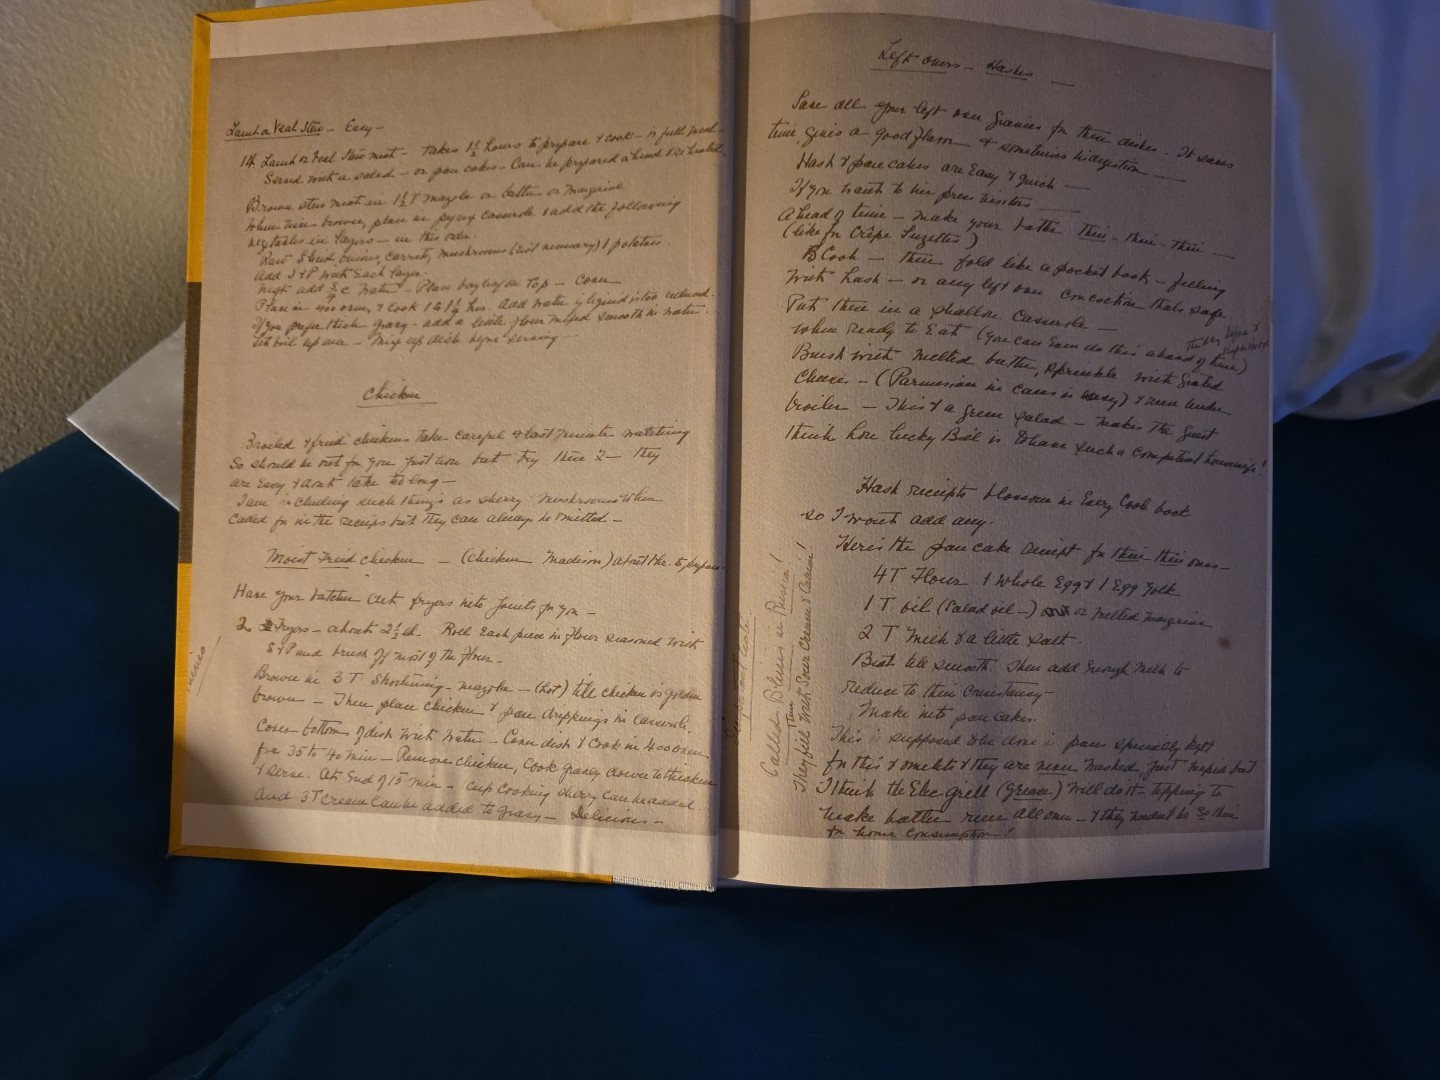 Lamb or Veal Stew - Easy -
1 lb. Lamb or Veal Stew meat - Takes 1½ hours to prepare & cook - is full meal -
Served with a salad - or pan cakes - Can be prepared ahead &
Brown stew meat in 1½ T mazola or butter or margerine
When brown, place in pyrex casserole & add the following
vegetables in layers - in this order.
Raw sliced onions, carrots, mushrooms (not necessary) & potatoes.
Add S & P with Each layer.
Next add ¾ c Water - Place bay leaf on Top - Cover
Place in 400 oven, & Cook 1 to 1½ hrs. Add water if liquid is too reduced.
If you prefer thick gravy - add a little flour mixed smooth in water.
Let boil up once - Mix up dish before serving -
Chicken
Broiled & fried chickens take careful & last minute watching
So should be out for you just now but try these 2 - they
are Easy & don't take too long -
I am including such things as sherry & mushrooms when
called for in the receipts but they can always be omitted -
Moist Fried chicken - (Chicken Madison) about 1 hr. to prepare.
Have your butcher cut fryers into joints for you -
2 Fryers - about 2½ lb. Roll Each piece in flour seasoned with
S & P and brush off most of the flour -
Brown in 3 T Shortening - mazola - (hot) till chicken is golden
brown - Then place chicken & pan drippings in casserole,
Cover bottom of dish with water - Cover dish & Cook in 400 oven
for 35 to 40 min - Remove chicken, Cook gravy down to thicken
& serve. At End of 15 min - cup cooking sherry can be added
And 3 T cream can be added to gravy - Delicious -
Left overs - Hashes
Save all your left over gravies for these dishes. It saves
time, gives a good flavor & sometimes indigestion -
Hash & pan cakes are Easy & quick -
If you want to impress visitors -
Ahead of time - make your batter thin - thin - thin -
(like for Crêpe Suzettes)
Cook - then fold like a pocket book - filling
with hash - or any left over concoction thats safe.
Put these in a shallow Casserole -
When ready to Eat (you can Even do this ahead of time)
the day before &
Brush with melted butter, sprinkle with grated
Cheese - (Parmesian in cans is easy) & run under
broiler - This & a green salad - makes the guest
think how lucky Bill is to have such a competent housewife!
Hash receipts blossom in Every Cook book
so I won't add any.
Here's the pan cake receipt for thin thin ones -
4 T Flour 1 Whole Egg & 1 Egg Yolk
1 T oil (salad oil -) or melted margerine
2 T Milk & a little salt.
Beat till smooth Then add Enough Milk to
reduce to thin consistency -
Make into pan cakes.
This is supposed to be done in pans specially kept
for this & omelets & they are never washed just wiped but
I think the Elec grill (Grease) will do it - tipping to
make batter run all over - & they needn't be so thin
for home consumption!
Called Blinis in Russia!
They fill them with Sour Cream & Caviar!